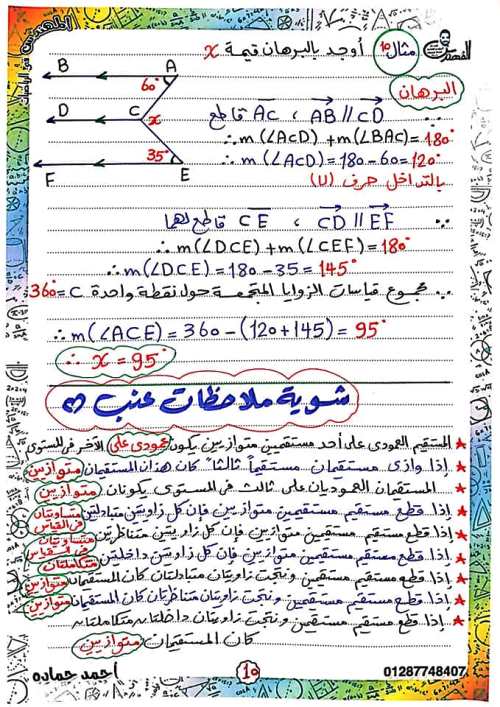 المهندس في الرياضيات
المهندس
مثال ١٥ أوجد بالبرهان قيمة x
البرهان
B
A
60°
D
C
x
35°
F
E
∵ AB // CD ، AC قاطع
∴ m(∠ACD) + m(∠BAC) = 180°
∴ m(∠ACD) = 180 - 60 = 120°
بالتداخل حرف (U)
∵ CD // EF ، CE قاطع لهما
∴ m(∠DCE) + m(∠CEF) = 180°
∴ m(∠DCE) = 180 - 35 = 145°
∵ مجموع قياسات الزوايا المتجمعة حول نقطة واحدة C = 360
∴ m(∠ACE) = 360 - (120 + 145) = 95°
∴ x = 95°
شوية ملاحظات عنب
★ المستقيم العمودى على أحد مستقمين متوازيين يكون عمودى على الآخر فى المستوى
★ إذا وازى مستقيمان مستقيماً ثالثاً كان هذان المستقيمان متوازيين
★ المستقيمان العموديان على ثالث فى المستوى يكونان متوازيين
★ إذا قطع مستقيم مستقيمين متوازيين فإن كل زاويتين متبادلتين متساويتان فى القياس
★ إذا قطع مستقيم مستقيمين متوازيين فإن كل زاويتين متناظرتين متساويتان فى القياس
★ إذا قطع مستقيم مستقيمين متوازيين فإن كل زاويتين داخلتين متكاملتان
★ إذا قطع مستقيم مستقيمين ونتجت زاويتان متبادلتان كان المستقيمان متوازيين
★ إذا قطع مستقيم مستقيمين ونتجت زاويتان متناظرتان كان المستقيمان متوازيين
★ إذا قطع مستقيم مستقيمين ونتجت زاويتان داخلتان متكاملتان
كان المستقيمان متوازيين
أحمد حماده
10
01287748407